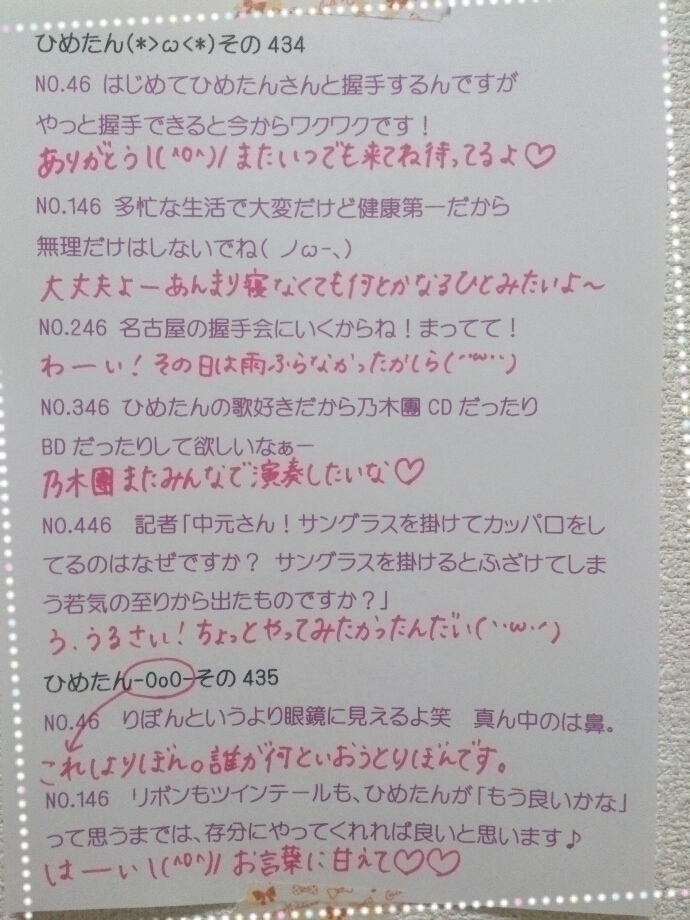 ひめたん(*>ω<*)その434
NO.46 はじめてひめたんさんと握手するんですが
やっと握手できると今からワクワクです！
ありがとう\(^o^)/またいつでも来てね待ってるよ♡
NO.146 多忙な生活で大変だけど健康第一だから
無理だけはしないでね( ノω-､)
大丈夫よーあんまり寝なくても何とかなるひとみたいよ〜
NO.246 名古屋の握手会にいくからね！まってて！
わーい！その日は雨ふらなかったかしら(･´ω`･)
NO.346 ひめたんの歌好きだから乃木團CDだったり
BDだったりして欲しいなぁー
乃木團またみんなで演奏したいな♡
NO.446 記者「中元さん！サングラスを掛けてカッパ口をし
てるのはなぜですか？ サングラスを掛けるとふざけてしま
う若気の至りから出たものですか？」
う､うるさい！ちょっとやってみたかったんだい(･`ω･´)
ひめたん-OoO-その435
NO.46 りぼんというより眼鏡に見えるよ笑 真ん中のは鼻。
これはりぼん。誰が何といおうとりぼんです。
NO.146 リボンもツインテールも、ひめたんが「もう良いかな」
って思うまでは、存分にやってくれれば良いと思います♪
はーい\(^o^)/お言葉に甘えて♡♡